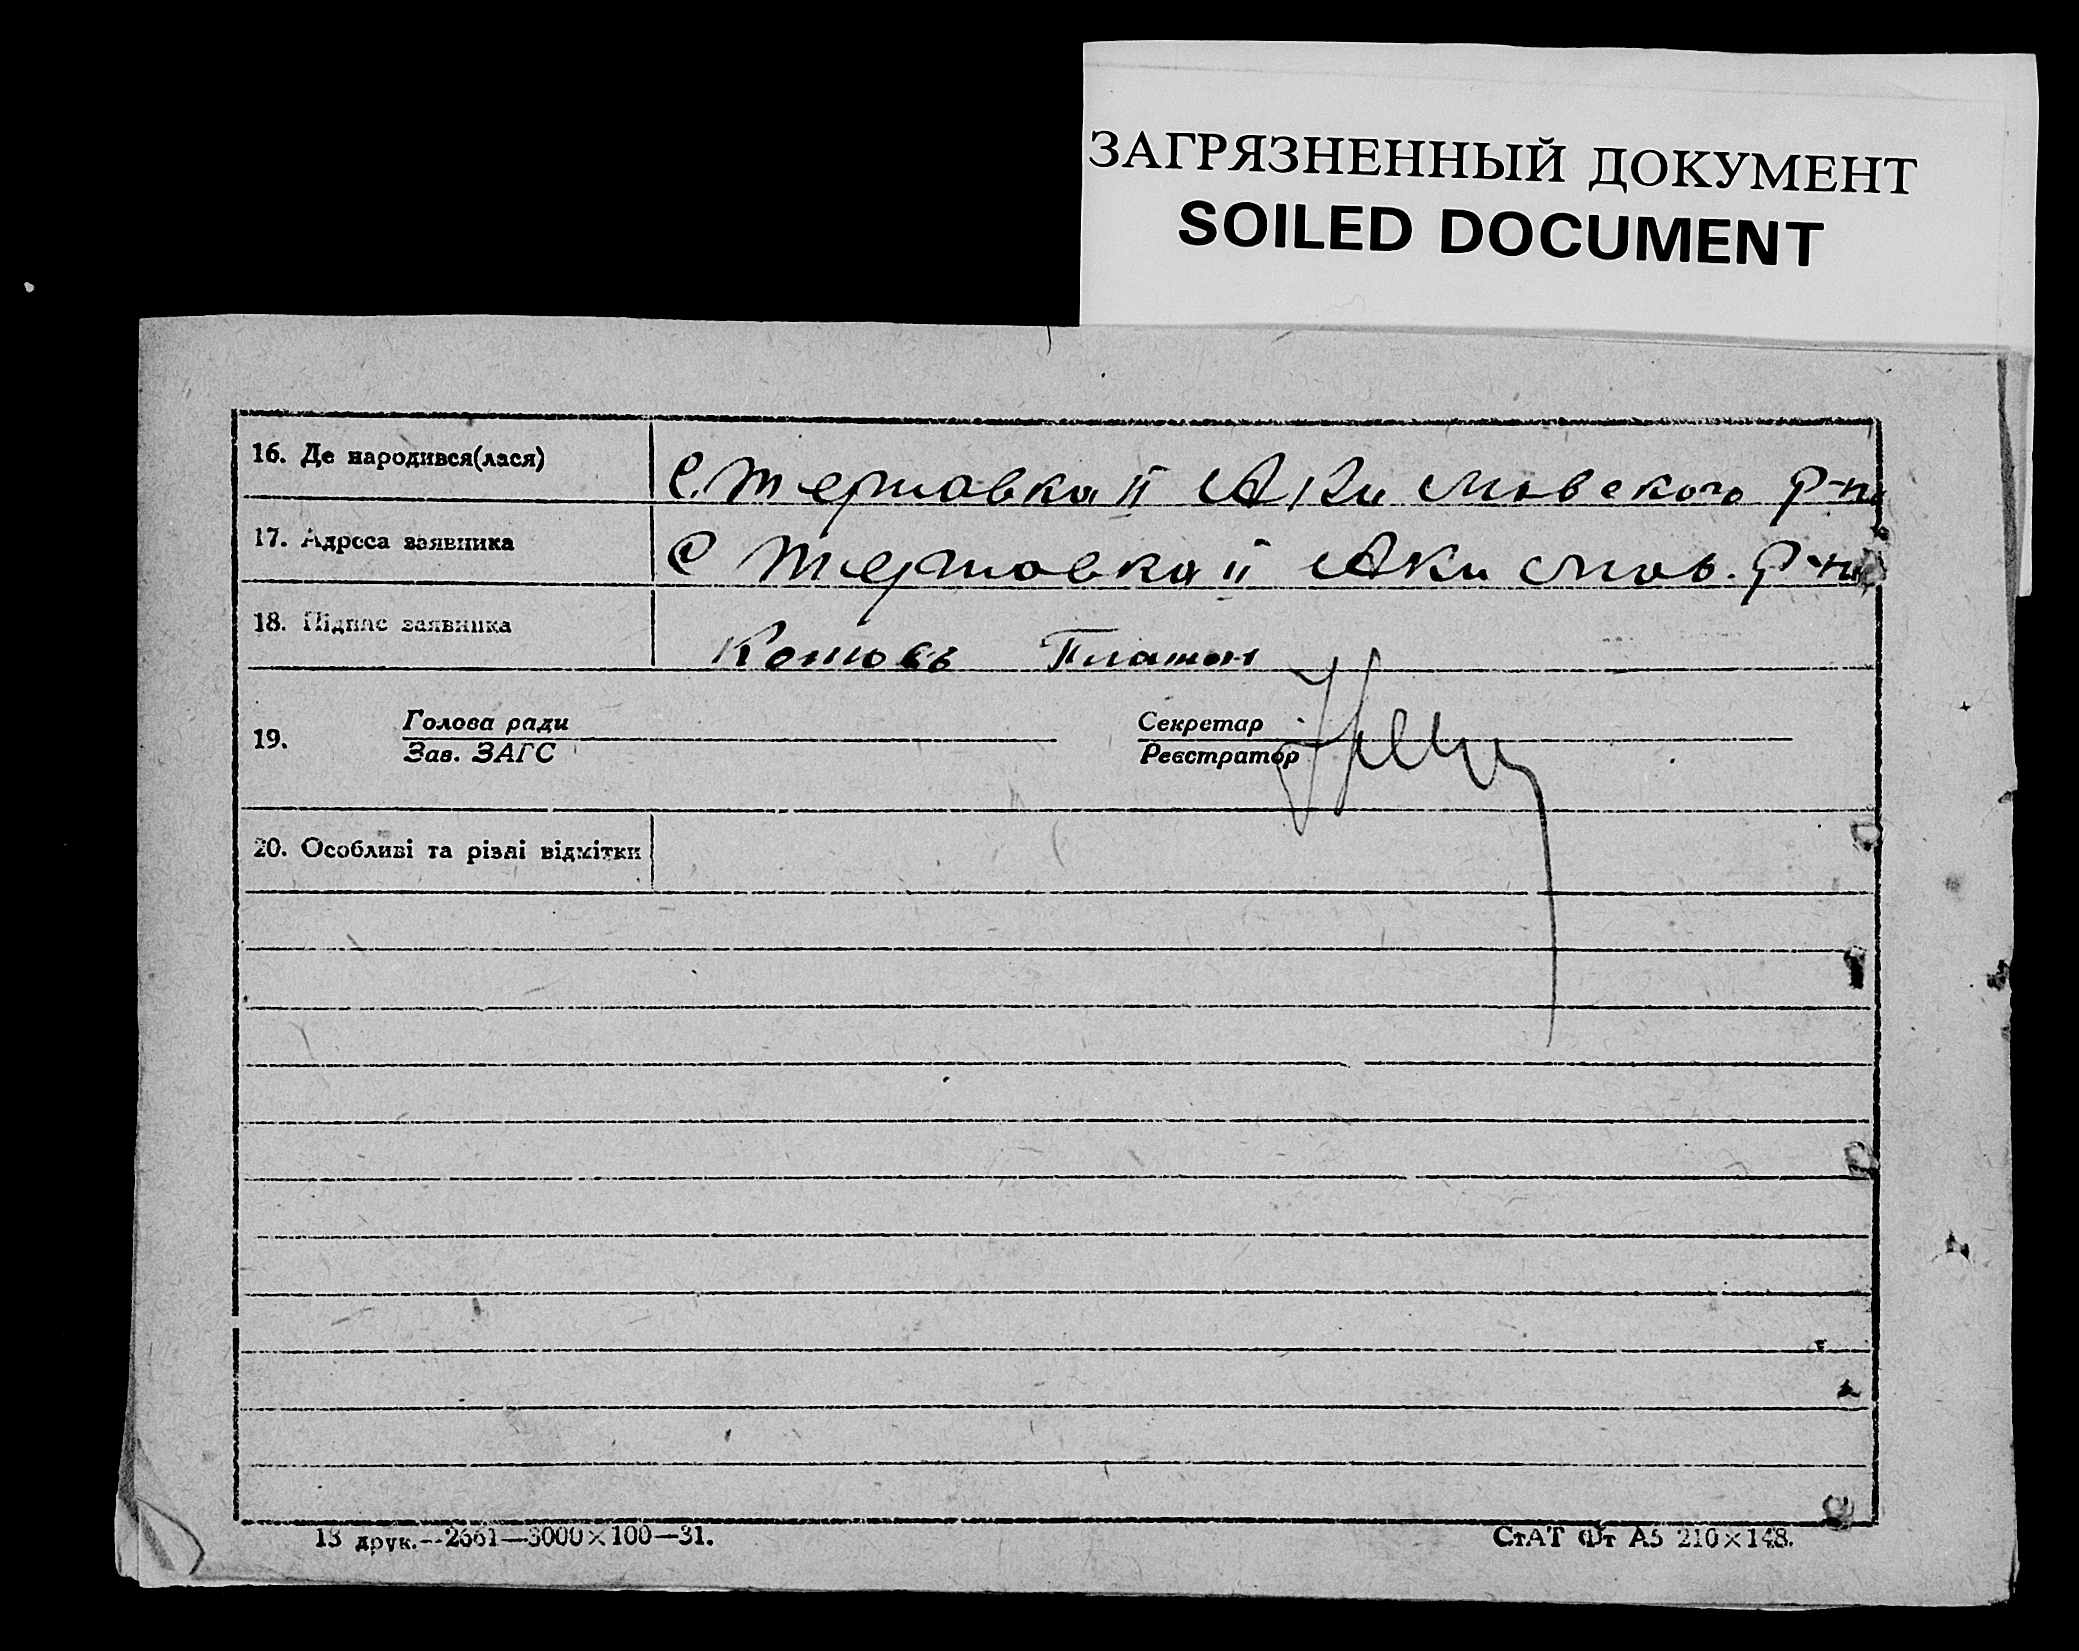 ЗАГРЯЗНЕННЫЙ ДОКУМЕНТ
SOILED DOCUMENT
16. Де народився(лася) с. Терповка II Акимовского р-н
17. Адреса заявника с Терповка II Акимов. р-н
18. Підпис заявника Котовъ Платон
19. Голова ради Секретар
Зав. ЗАГС Реєстратор
20. Особливі та різні відмітки
13 друк.--2661—3000×100—31. СтАТ Фт А5 210×148.